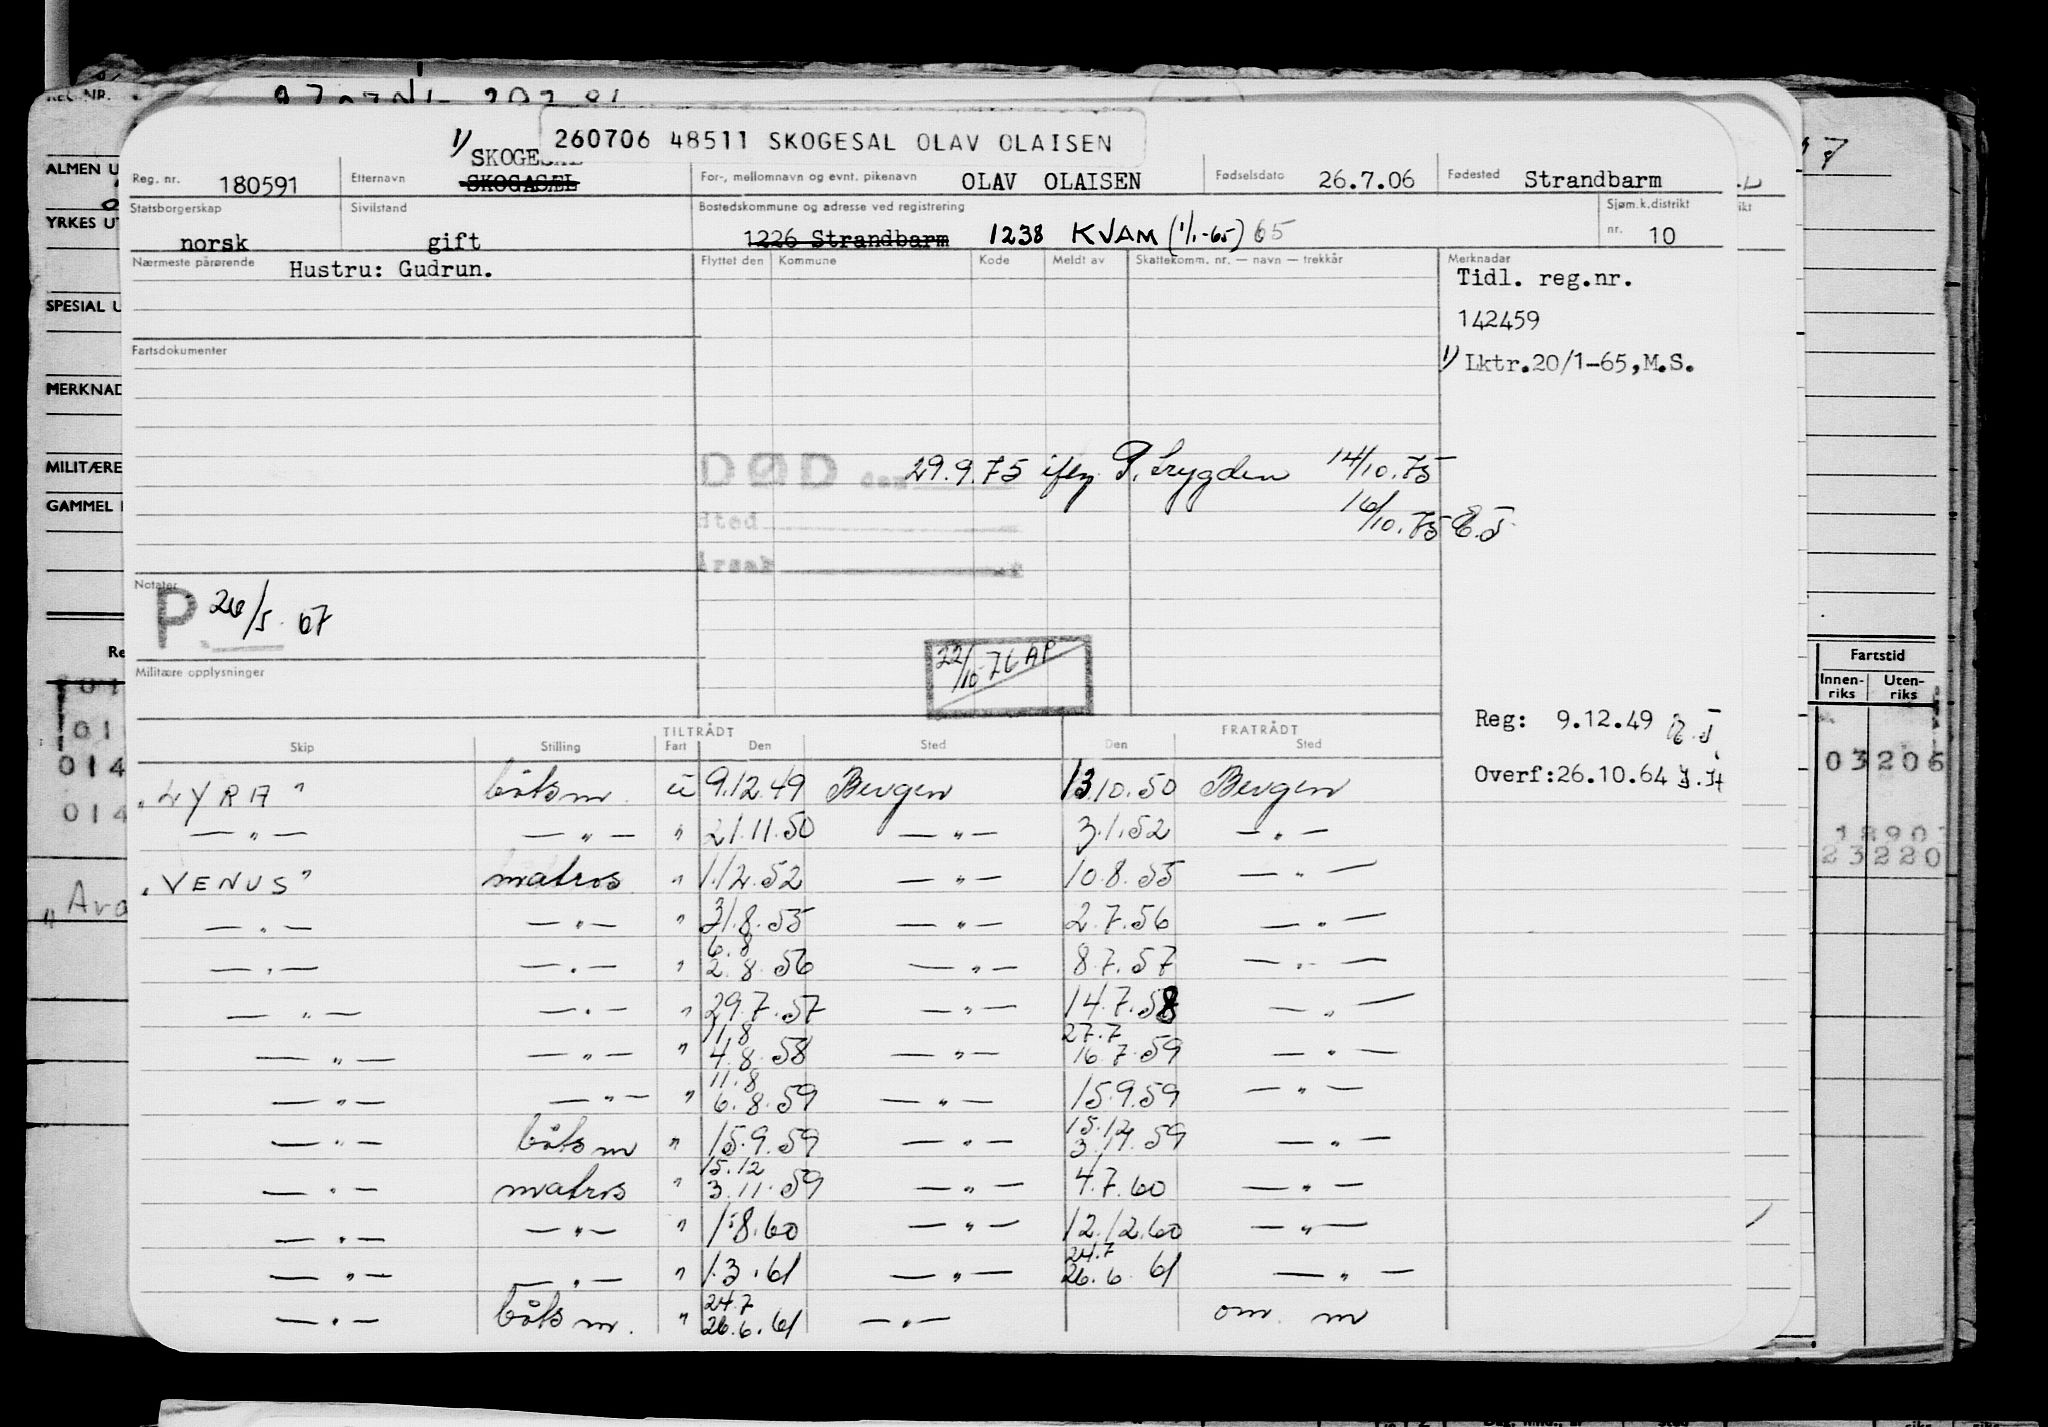 260706 48511 SKOGESAL OLAV OLAISEN
1) SKOGESAL
Reg. nr. 180591 Etternavn SKOGASÆL For-, mellomnavn og evnt. pikenavn OLAV OLAISEN Fødselsdato 26.7.06 Fødested Strandbarm
Statsborgerskap norsk Sivilstand gift Bostedskommune og adresse ved registrering 1226 Strandbarm 1238 KVAM (1/1-65) 65 Sjøm.k.distrikt nr. 10
Nærmeste pårørende Hustru: Gudrun. Flyttet den Kommune Kode Meldt av Skattekomm. nr. — navn — trekkår Merknader
Tidl. reg.nr.
142459
1) Lktr.20/1-65, M.S.
Fartsdokumenter
DØD den 29.9.75 iflg. P. Trygden 14/10.75
Sted 16/10.75 E.J.
Årsak
Notater
P 26/5. 67
22/10-76 AP
Militære opplysninger
Reg: 9.12.49
Overf:26.10.64
TILTRÅDT FRATRÅDT
Skip Stilling Fart Den Sted Den Sted
"LYRA" båtsm. u 9.12.49 Bergen 13.10.50 Bergen
— " — — " — " 21.11.50 — " — 3.1.52 — " —
"VENUS" matros " 1.12.52 — " — 10.8.55 — " —
— " — — " — " 31.8.55 — " — 2.7.56 — " —
6.8
— " — — " — " 2.8.56 — " — 8.7.57 — " —
— " — — " — " 29.7.57 — " — 14.7.58 — " —
11.8 27.7
— " — — " — " 4.8.58 — " — 16.7.59 — " —
11.8
— " — — " — " 6.8.59 — " — 15.9.59 — " —
15.12
— " — båtsm " 15.9.59 — " — 3.11.59 — " —
15.12
— " — matros " 3.11.59 — " — 4.7.60 — " —
— " — — " — " 1.8.60 — " — 12.12.60 — " —
24.7
— " — — " — " 1.3.61 — " — 26.6.61 — " —
24.7
— " — båtsm. " 26.6.61 — " — om. m
REG. NR.
ALMEN U
YRKES UT
SPESIAL U
MERKNAD
MILITÆRE
GAMMEL
Re
014
014
"Ava
Fartstid
Innen-riks Uten-riks
03206
18903
23220